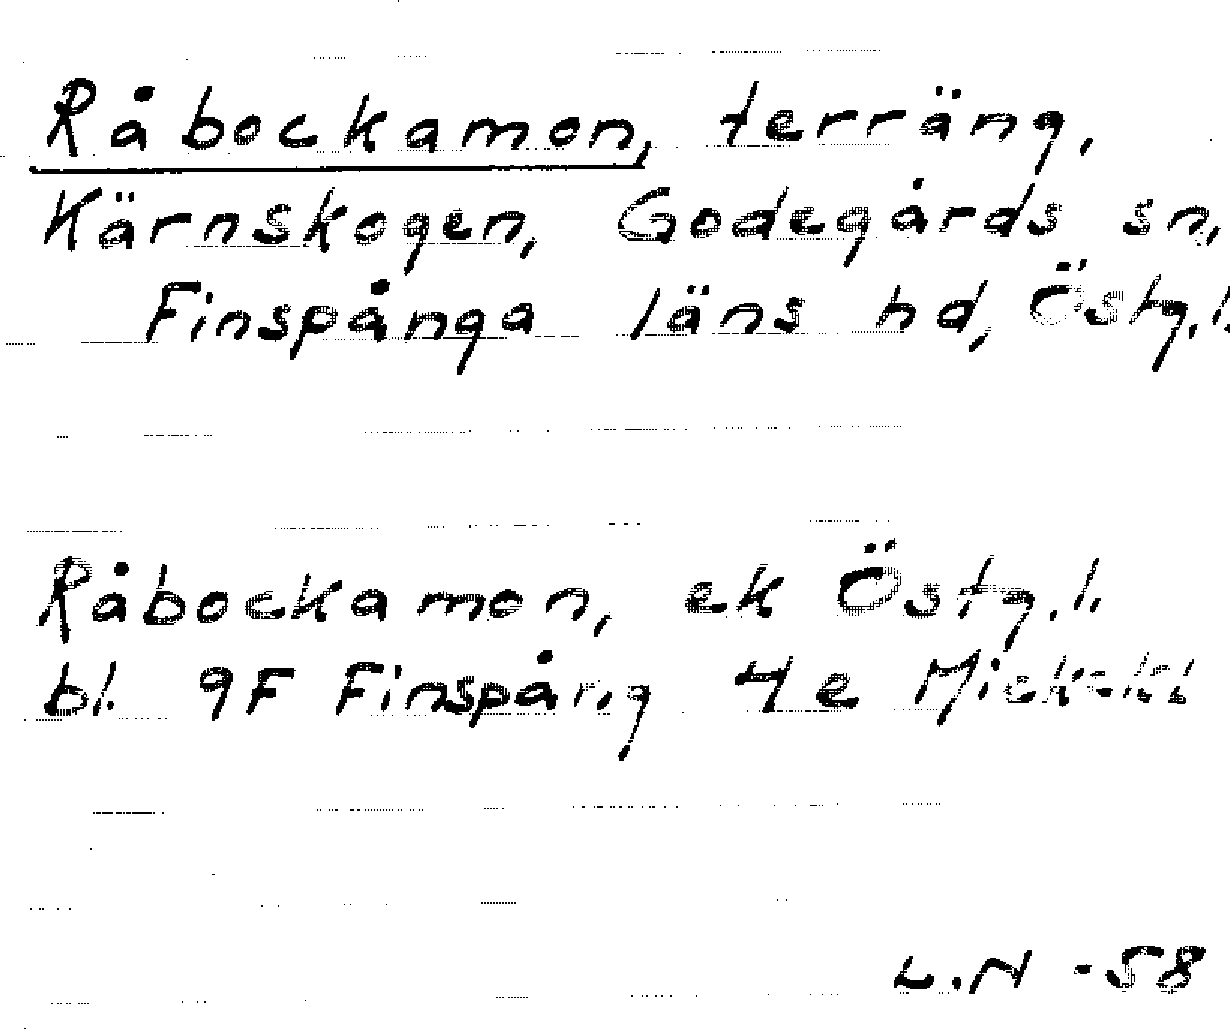 Råbockamon, terräng,
Kärnskogen, Godegårds sn,
Finspånga läns hd, Östg.l.
Råbockamon, ek Östg.l.
bl. 9F Finspång 4e
L.N -58